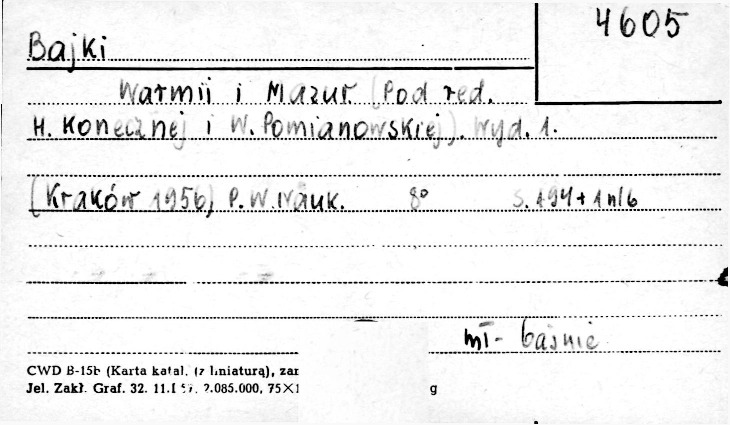 4605
Bajki
Warmii i Mazur. (Pod red.
H. Konecznej i W. Pomianowskiej). Wyd. 1.
(Kraków 1956) P.W.Nauk. 8° S. 194 + 1 nlb
mł - baśnie
CWD B-15b (Karta katal. (z liniaturą), zam
Jel. Zakł. Graf. 32. 11.I 2.085.000, 75×1 g